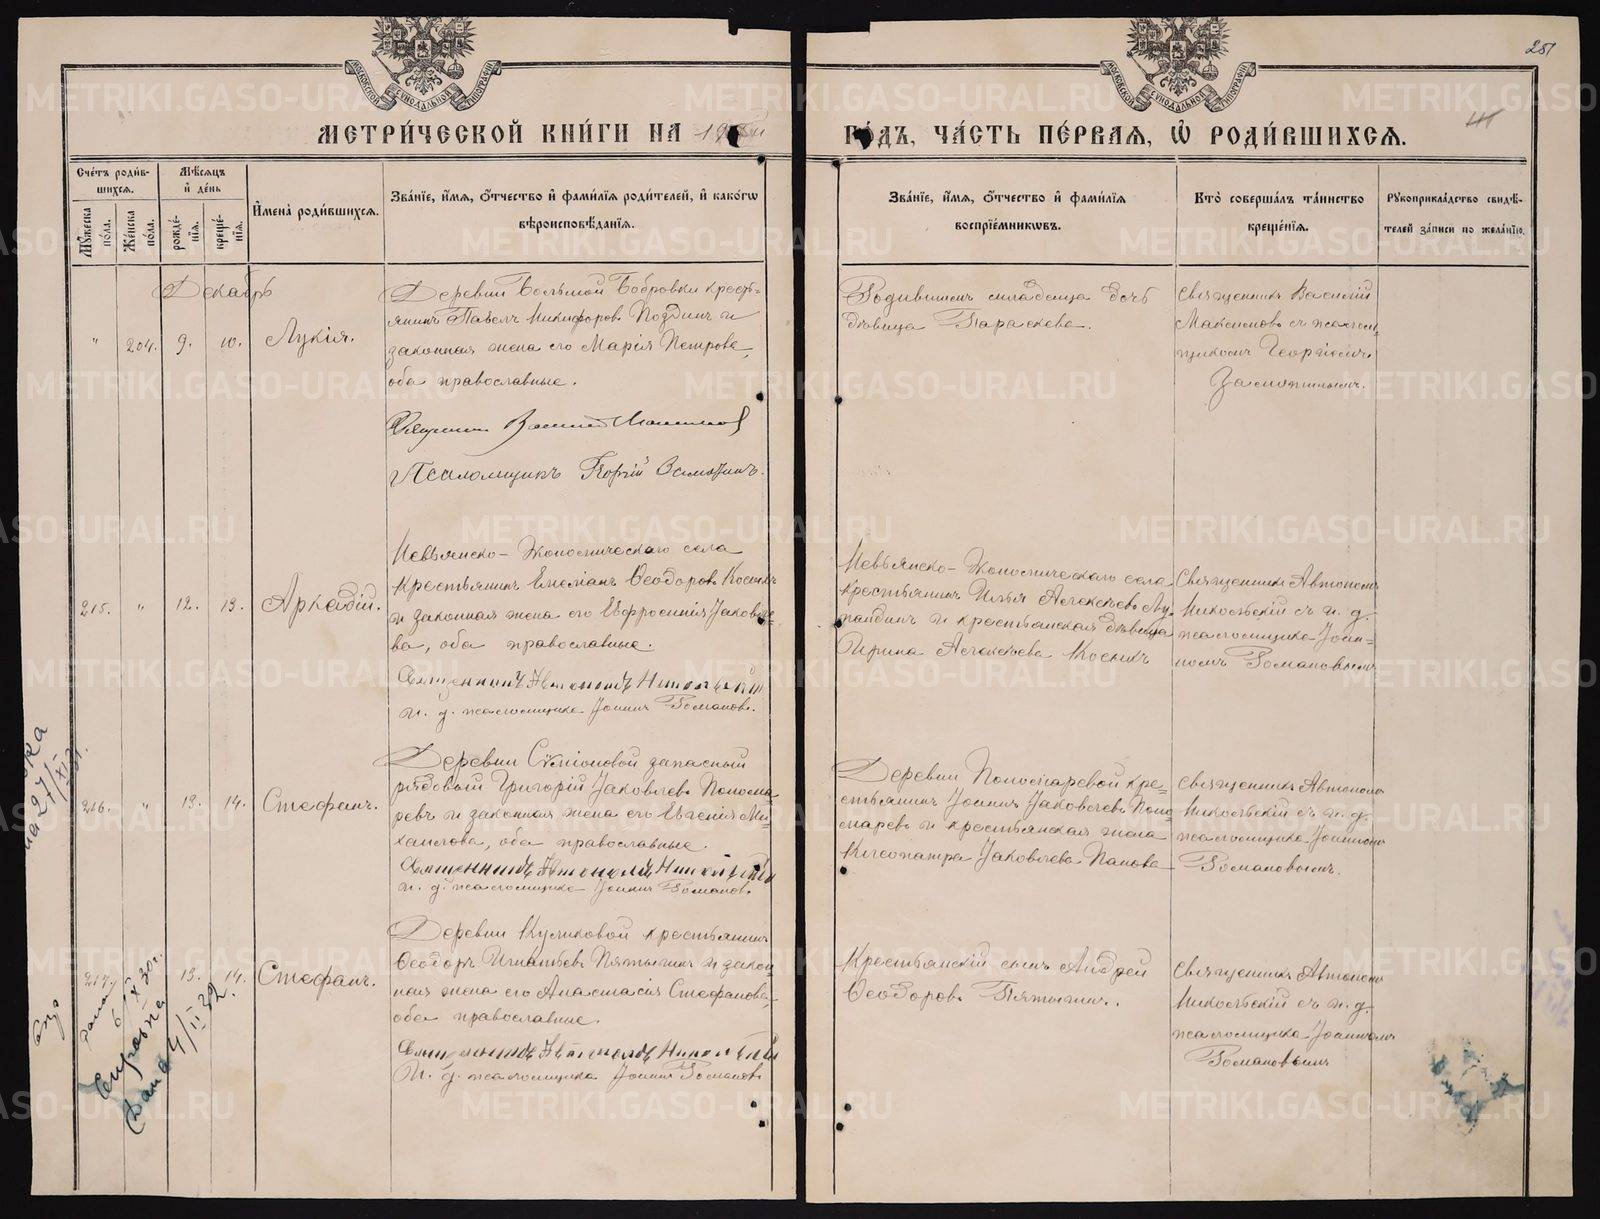 251
МОСКОВСКОЙ СѴНОДАЛЬНОЙ ТИПОГРАФІИ
МОСКОВСКОЙ СѴНОДАЛЬНОЙ ТИПОГРАФІИ
МЕТРИ́ЧЕСКОЙ КНИ́ГИ НА
ГО́ДЪ, ЧА́СТЬ ПЕ́РВАѦ, Ѡ҆ РОДИ́ВШИХСѦ.
Сче́тъ роди́в-
шихсѧ.
Мꙋжеска по́ла.
Же́нска по́ла.
Мѣ́сѧцъ и҆ де́нь
рожде́-
нїѧ.
креще́-
нїѧ.
И҆мена̀ роди́вшихсѧ.
Зва́нїе, и҆́мѧ, ѻ҆́тчество и҆ фами́лїѧ роди́телей, и҆ како́гѡ
вѣроисповѣ́данїѧ.
Зва́нїе, и҆́мѧ, ѻ҆́тчество и҆ фами́лїѧ
воспрїе́мникѡвъ.
Кто̀ соверша́лъ та́инство
креще́нїѧ.
Рꙋкоприкла́дство свидѣ́-
телей за́писи по жела́нїю.
Декабрь
" 204. 9. 10. Лукія.
Деревни Большой Бобровки кресть-
янинъ Павелъ Никифоровъ Поздинъ и
законная жена его Марія Петрова,
оба православные.
Священникъ Василій Максимовъ
Псаломщикъ Георгій Замотинъ.
Родившимъ младенца дочь
дѣвица Параскева.
Священникъ Василій
Максимовъ съ псалом-
щикомъ Георгіемъ
Замотинымъ.
215. " 12. 13. Аркадій.
Невьянско-Экономическаго села
крестьянинъ Емеліанъ Ѳеодоровъ Косыхъ
и законная жена его Евфросинія Яковле-
ва, оба православные.
Священникъ Автономъ Никольскій
и. д. псаломщика Іоаннъ Романовъ.
Невьянско-Экономическаго села
крестьянинъ Илья Алексѣевъ Лу-
пандинъ и крестьянская дѣвица
Ирина Алексѣева Косыхъ
Священникъ Автономъ
Никольскій съ и. д.
псаломщика Іоан-
номъ Романовымъ
216. " 13. 14. Стефанъ.
Деревни запасный
рядовый Григорій Яковлевъ Понома-
ревъ и законная жена его Евгенія Ми-
хаилова, оба православные.
Священникъ Автономъ Никольскій
и. д. псаломщика Іоаннъ Романовъ
Деревни Пономаревой кре-
стьянинъ Іоаннъ Яковлевъ Поно-
маревъ и крестьянская жена
Клеопатра Яковлева Панова
Священникъ Автономъ
Никольскій съ и. д.
псаломщика Іоанномъ
Романовымъ.
217. 13. 14. Стефанъ.
Деревни Куликовой крестьянинъ
Ѳеодоръ Игнатьевъ Пятыгинъ и закон-
ная жена его Анастасія Стефанова,
оба православные.
Священникъ Автономъ Никольскій
И. д. псаломщика Іоаннъ Романовъ
Крестьянскій сынъ Андрей
Ѳеодоровъ Пятыгинъ.
Священникъ Автономъ
Никольскій съ и. д.
псаломщика Іоанномъ
Романовымъ
Справка
Дана 4/II 32.
METRIKI.GASO-URAL.RU